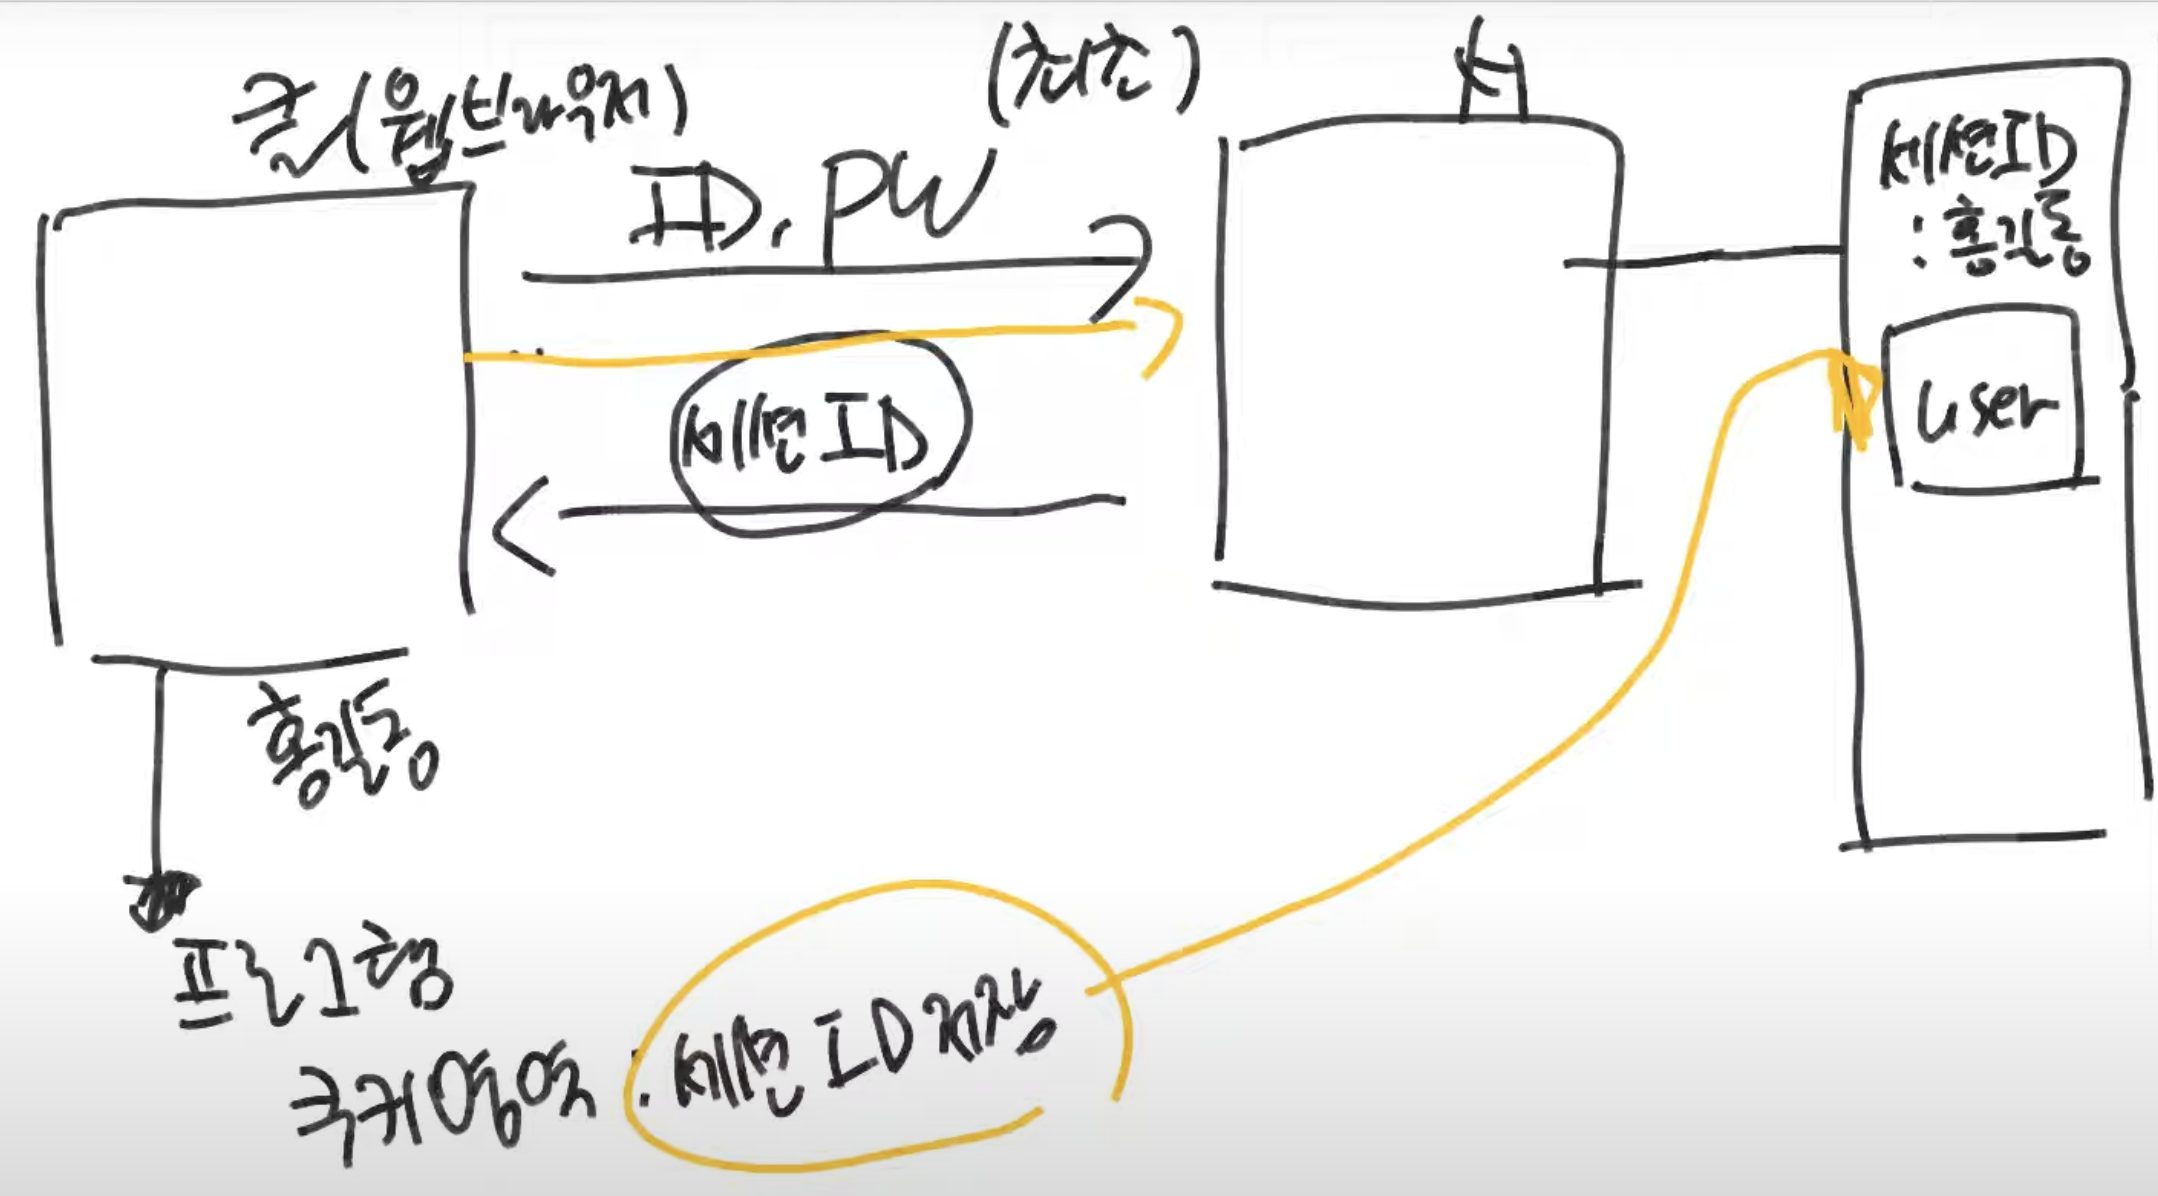 클(웹브라우저)
(최초)
서
ID, PW
세션ID
: 홍길동
user
세션ID
홍길동
프로그램
쿠키영역 : 세션ID저장